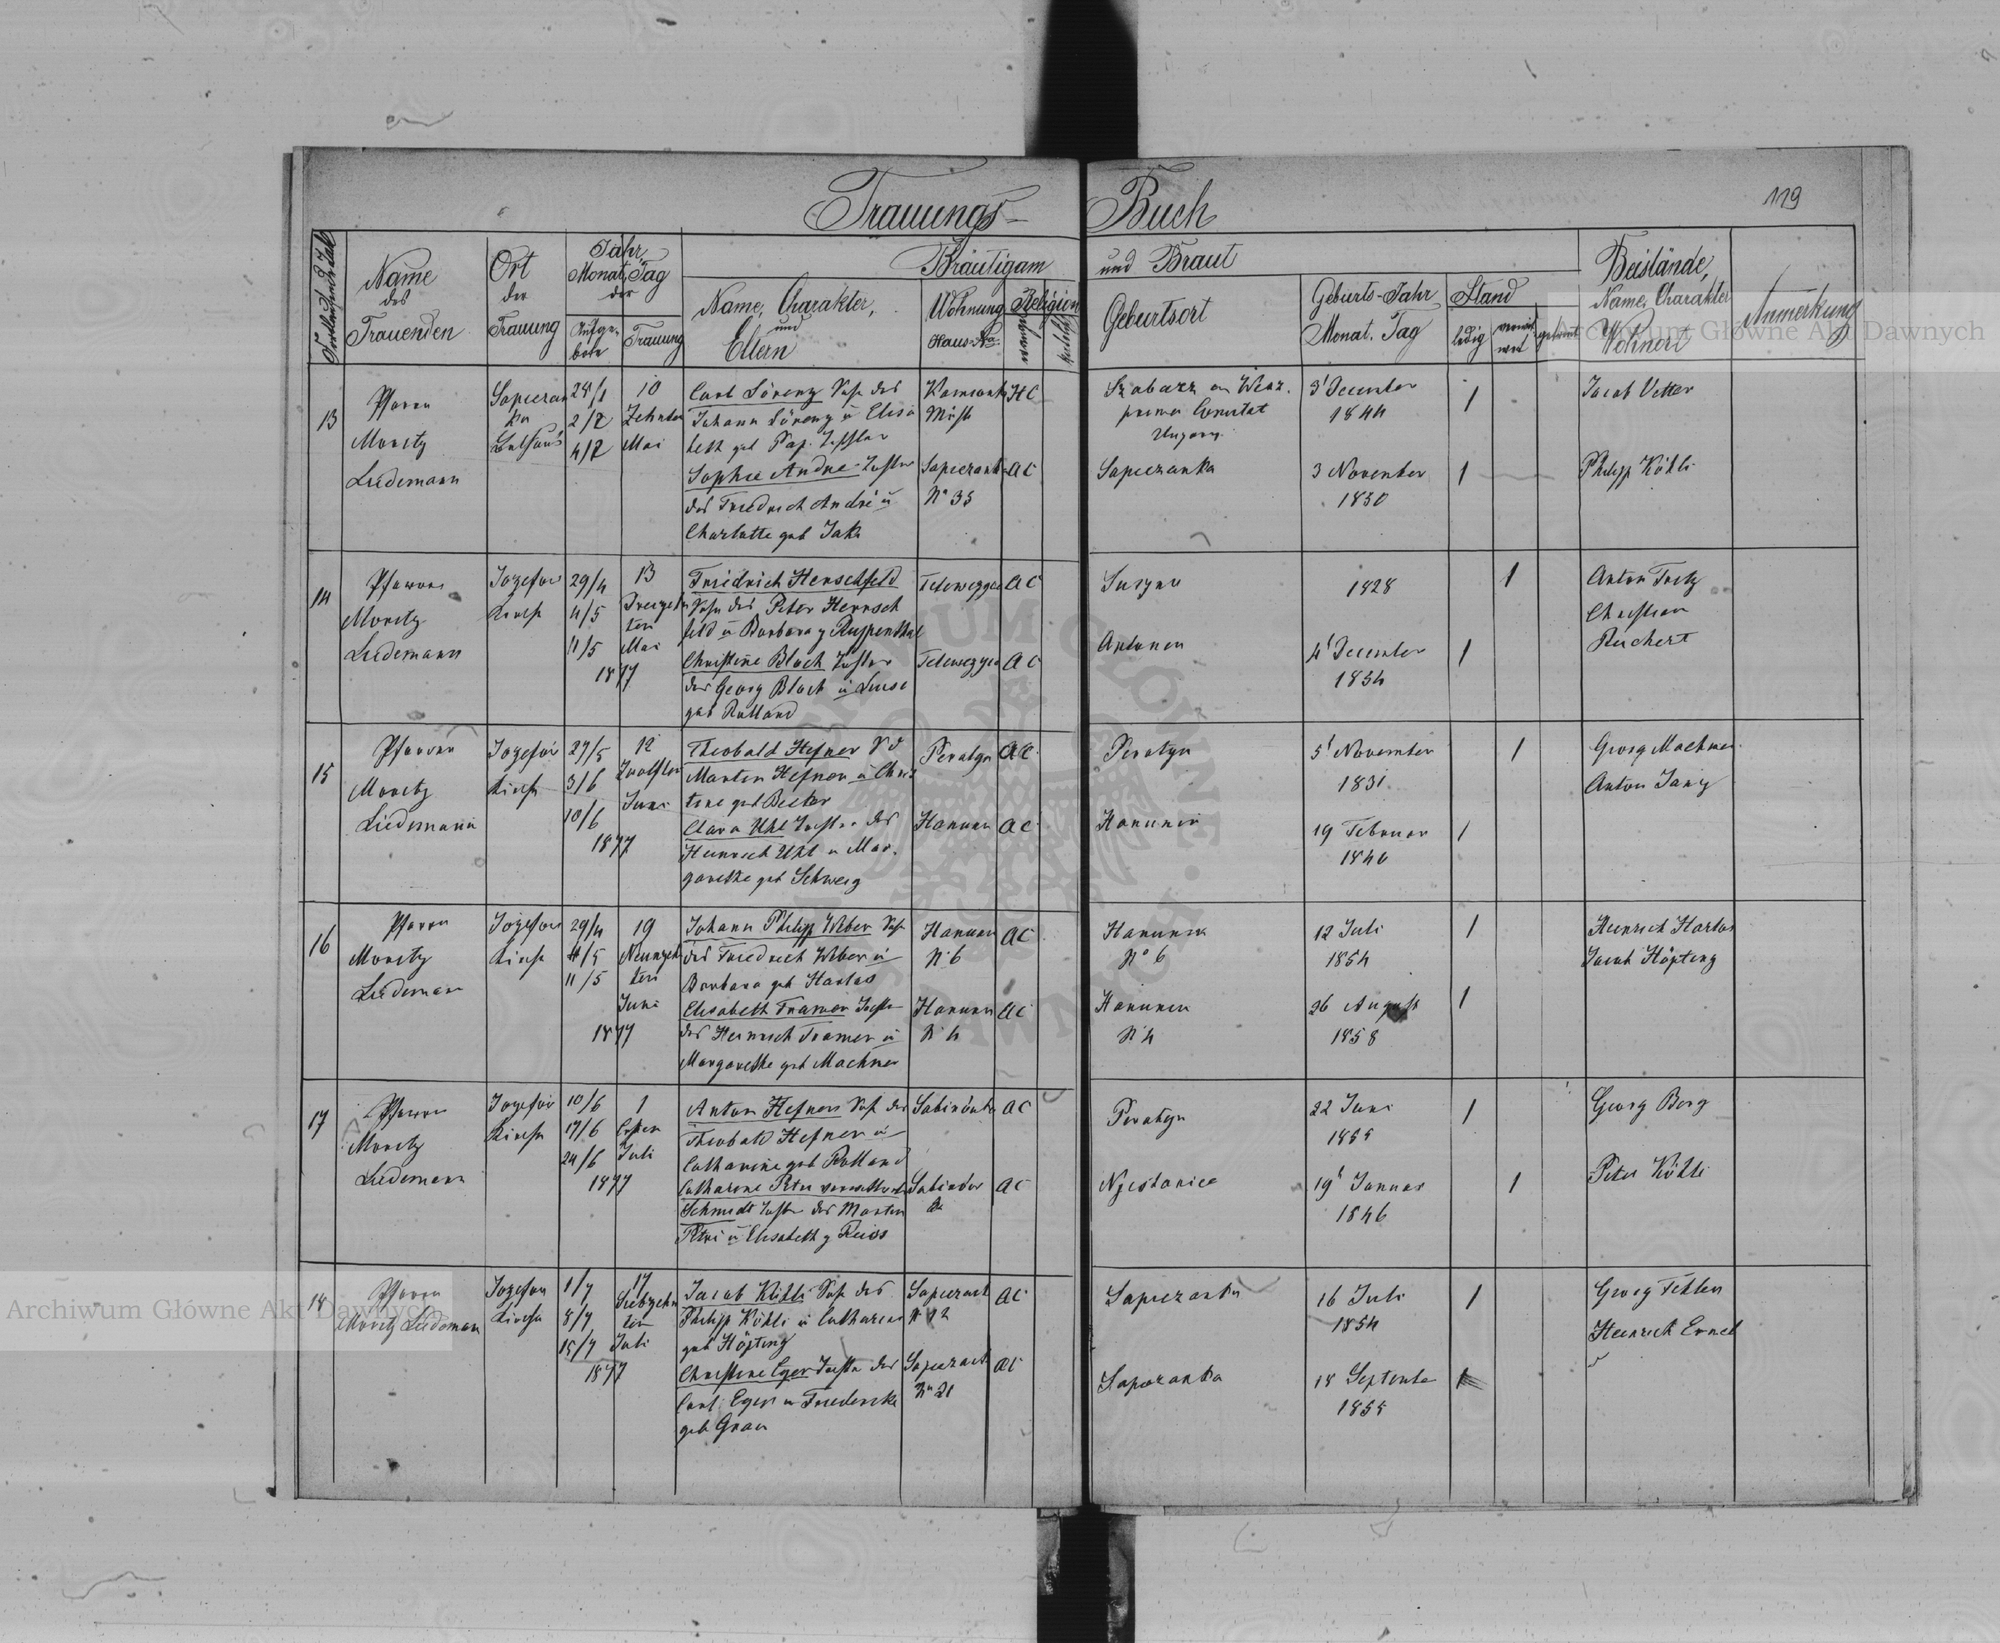 Trauungs- Buch
119
Fortlaufende Zahl
Name
des
Trauenden
Ort
der
Trauung
Jahr,
Monat, Tag
der
Aufge-
bote
Trauung
Bräutigam und Braut
Name, Charakter,
und
Eltern
Wohnung
Haus-No
Religion
Geburtsort
Geburts-Jahr
Monat. Tag
Stand
ledig
verwit-
wet
getrennt
Beistände,
Name, Charakter
Wohnort
Anmerkung
13
Pfarrer
Moritz
Liedemann
Sapiezan
ka
Bethaus
28/1
2/2
4/2
10
Zehnten
Mai
Carl Lörenz Sohn des
Johann Lörenz u Elisa
beth geb Tochter
Sophie Andre Tochter
des Friedrich André u
Charlotte geb Jaki
Kamionka
HC
Sapiezanka
No 33
AC
Ungarn
Sapiezanka
3' December
1844
3 November
1850
1
1
Jacob Vetter
Philipp Köhli
14
Pfarrer
Moritz
Liedemann
Jozefow
Kirche
29/4
4/5
11/5
1877
13
Dreizehn
ten
Mai
Friedrich Herschfeld
Sohn des Peter Hersch
feld u Barbara g Ruppenthal
Christine Bloch Tochter
des Georg Bloch u Luise
geb Rolland
AC
AC
1828
4' December
1854
1
1
Anton Tretz
Christian
Reichert
15
Pfarrer
Moritz
Liedemann
Jozefow
Kirche
27/5
3/6
10/6
1877
12
Zwölften
Juni
Theobald Hefner S d
Martin Hefner u Chris
tine geb Becker
Clara Uhl Tochter des
Heinrich Uhl u Mar.
garethe geb Schweig
Peratyn
AC
Hanunin
AC
Peratyn
Hanunin
5' November
1831
19 Februar
1840
1
1
Georg Machner
Anton Janz
16
Pfarrer
Moritz
Liedemann
Jozefow
Kirche
29/4
4/5
11/5
1877
19
Neunzehn
ten
Juni
Johann Philipp Weber Sohn
des Friedrich Weber u
Barbara geb Harlos
Elisabeth Tramer Tochter
des Heinrich Tramer u
Margarethe geb Machner
Hanunin
N. 6
AC
Hanunin
N. 4
AC
Hanunin
No 6
Hanunin
N. 4
12 Juli
1854
26 August
1858
1
1
Heinrich Harlos
Jacob Höpting
17
Pfarrer
Moritz
Liedemann
Jozefow
Kirche
10/6
17/6
24/6
1877
1
Ersten
Juli
Anton Hefner Sohn des
Theobald Hefner u
Catharine geb Rolland
Catharine Petri verwittwete
Schmidt Tochter des Martin
Petri u Elisabeth g Reiss
AC
AC
Peratyn
Njestanice
22 Juni
1855
19' Januar
1846
1
1
Georg Berg
Peter Köhli
18
Pfarrer
Moritz Liedemann
Jozefow
Kirche
1/7
8/7
15/7
1877
17
Siebzehn
ten
Juli
Jacob Köhli Sohn des
Philipp Köhli u Catharine
geb Höpting
Christine Eger Tochter des
Carl Eger u Friedericke
geb Grau
Sapiezank
N 12
AC
Sapiezank
No 21
AC
Sapiezanka
Sapiezanka
16 Juli
1854
18 September
1855
1
1
Georg Fehler
Heinrich Ernel
Archiwum Główne Akt Dawnych
Archiwum Główne Akt Dawnych